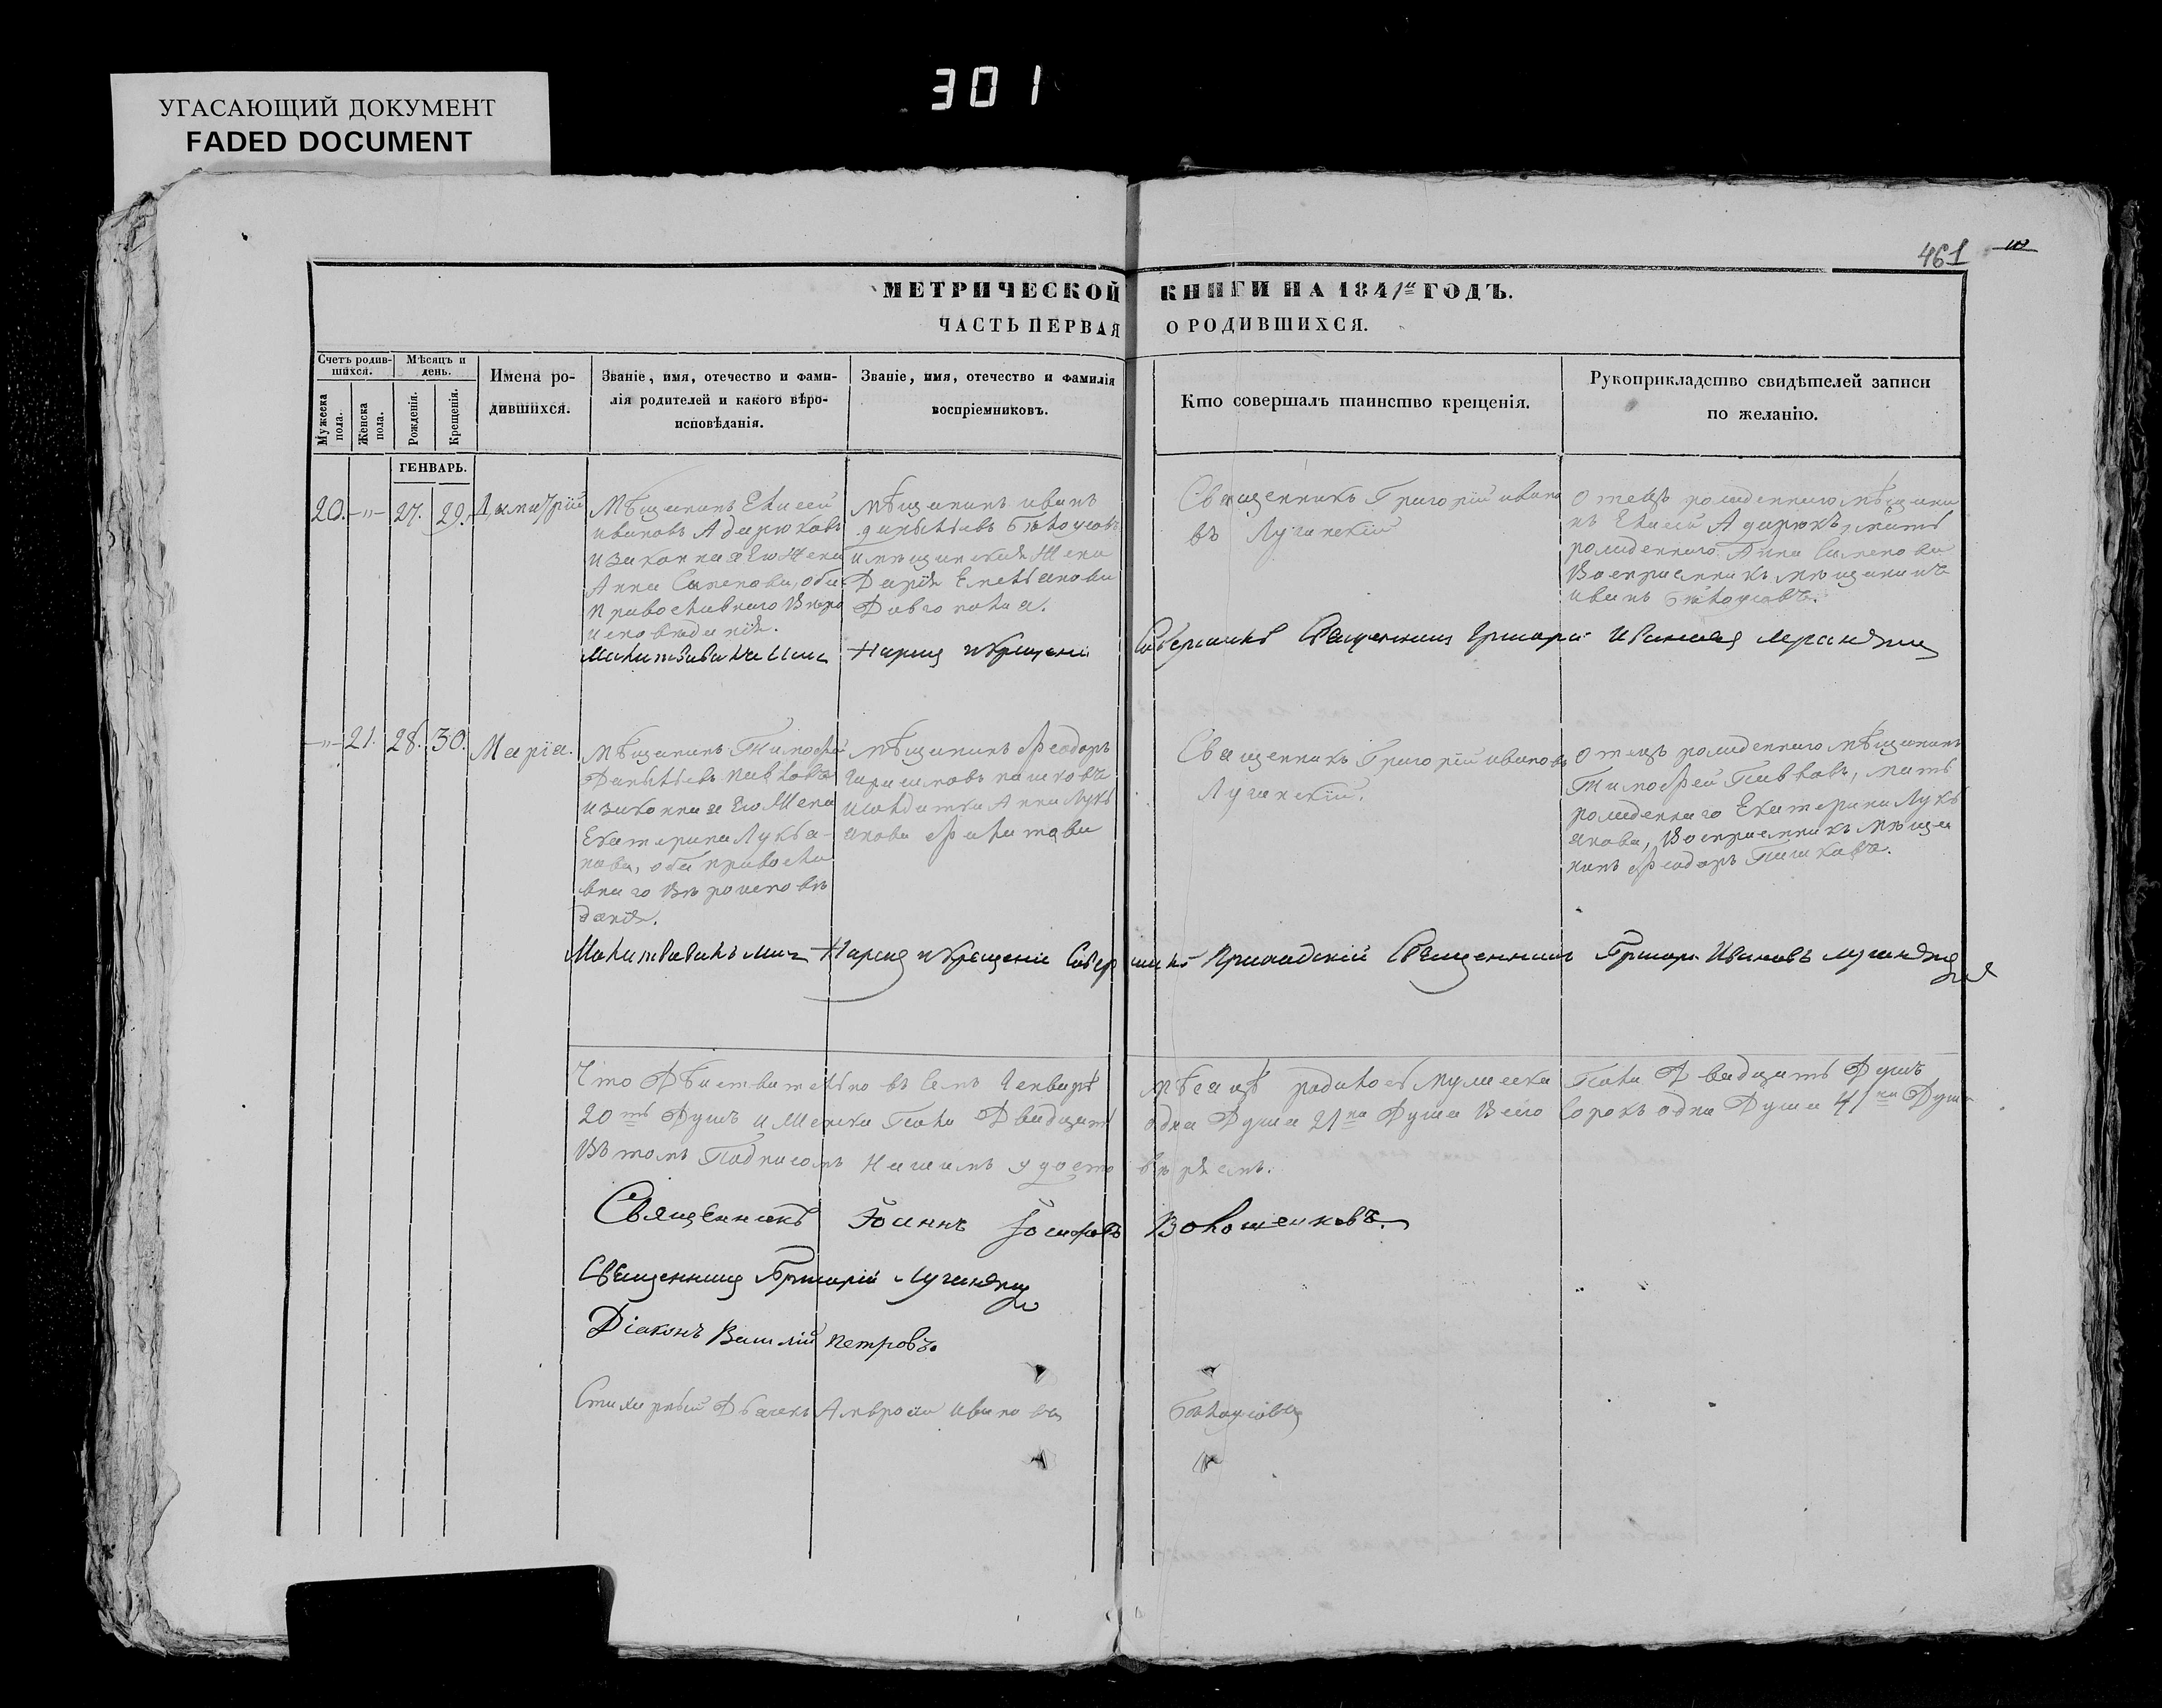 301
УГАСАЮЩИЙ ДОКУМЕНТ
FADED DOCUMENT
461
МЕТРИЧЕСКОЙ КНИГИ НА 1841й ГОДЪ.
ЧАСТЬ ПЕРВАЯ О РОДИВШИХСЯ.
Счетъ родившихся.
Мужеска пола.
Женска пола.
Мѣсяцъ и день.
Рожденія.
Крещенія.
Имена родившихся.
Званіе, имя, отечество и фамилія родителей и какого вѣроисповѣданія.
Званіе, имя, отечество и фамилія воспріемниковъ.
Кто совершалъ таинство крещенія.
Рукоприкладство свидѣтелей записи по желанію.
ГЕНВАРЬ.
20. -"- 27. 29. Димитрій
Мѣщанинъ Елисей
Ивановъ Адарюковъ
и законная Его жена
Анна Симеонова, оба
православнаго вѣро
исповѣданія.
мѣщанинъ иванъ
Бѣлоусовъ
и мѣщанская жена
Дарія Емельянова
Довгополая.
Священникъ Григорій ивано
въ Лучанскій
Отецъ рожденнаго мѣщани
нъ Елисей Адарюкъ, мать
рожденнаго Анна Симеонова
Воспріемникъ мѣщанинъ
иванъ Бѣлоусовъ.
Молитвовалъ имя Нарекъ и Крещеніе Совершилъ Священникъ Григорій Ивановъ
-"- 21. 28. 30. Марія.
Мѣщанинъ Тимофей
Данильевъ Павловъ
и законная Его жена
Екатерина Лукья-
нова, оба правосла
внаго вѣроисповѣ
данія.
мѣщанинъ Феодоръ
пашковъ
и солдатка Анна Лукь
янова Филатова
Священникъ Григорій ивановъ
Лучанскій.
Отецъ рожденнаго мѣщанинъ
Тимофей Павловъ, мать
рожденнаго Екатерина Лукь
янова, Воспріемникъ мѣща
нинъ Феодоръ Пашковъ.
Молитвовалъ имя Нарекъ и Крещеніе Совершилъ Приходскій Священникъ Григорій Ивановъ
Что Дѣйствительно въ семъ Генварѣ мѣсяцѣ родилось мужеска Пола Двадцать Душъ
20ть Душъ и Женска Пола Двадцать одна Душа 21на Душа Всего Сорокъ одна Душа 41на Душа
Въ томъ Подписомъ Нашимъ удостовѣряемъ.
Священникъ Іоаннъ Іосифовъ Волошенковъ.
Священникъ Григорій
Діаконъ Василій Петровъ.
Стихарный Дьячекъ Амвросій Ивановъ Бѣлоусовъ